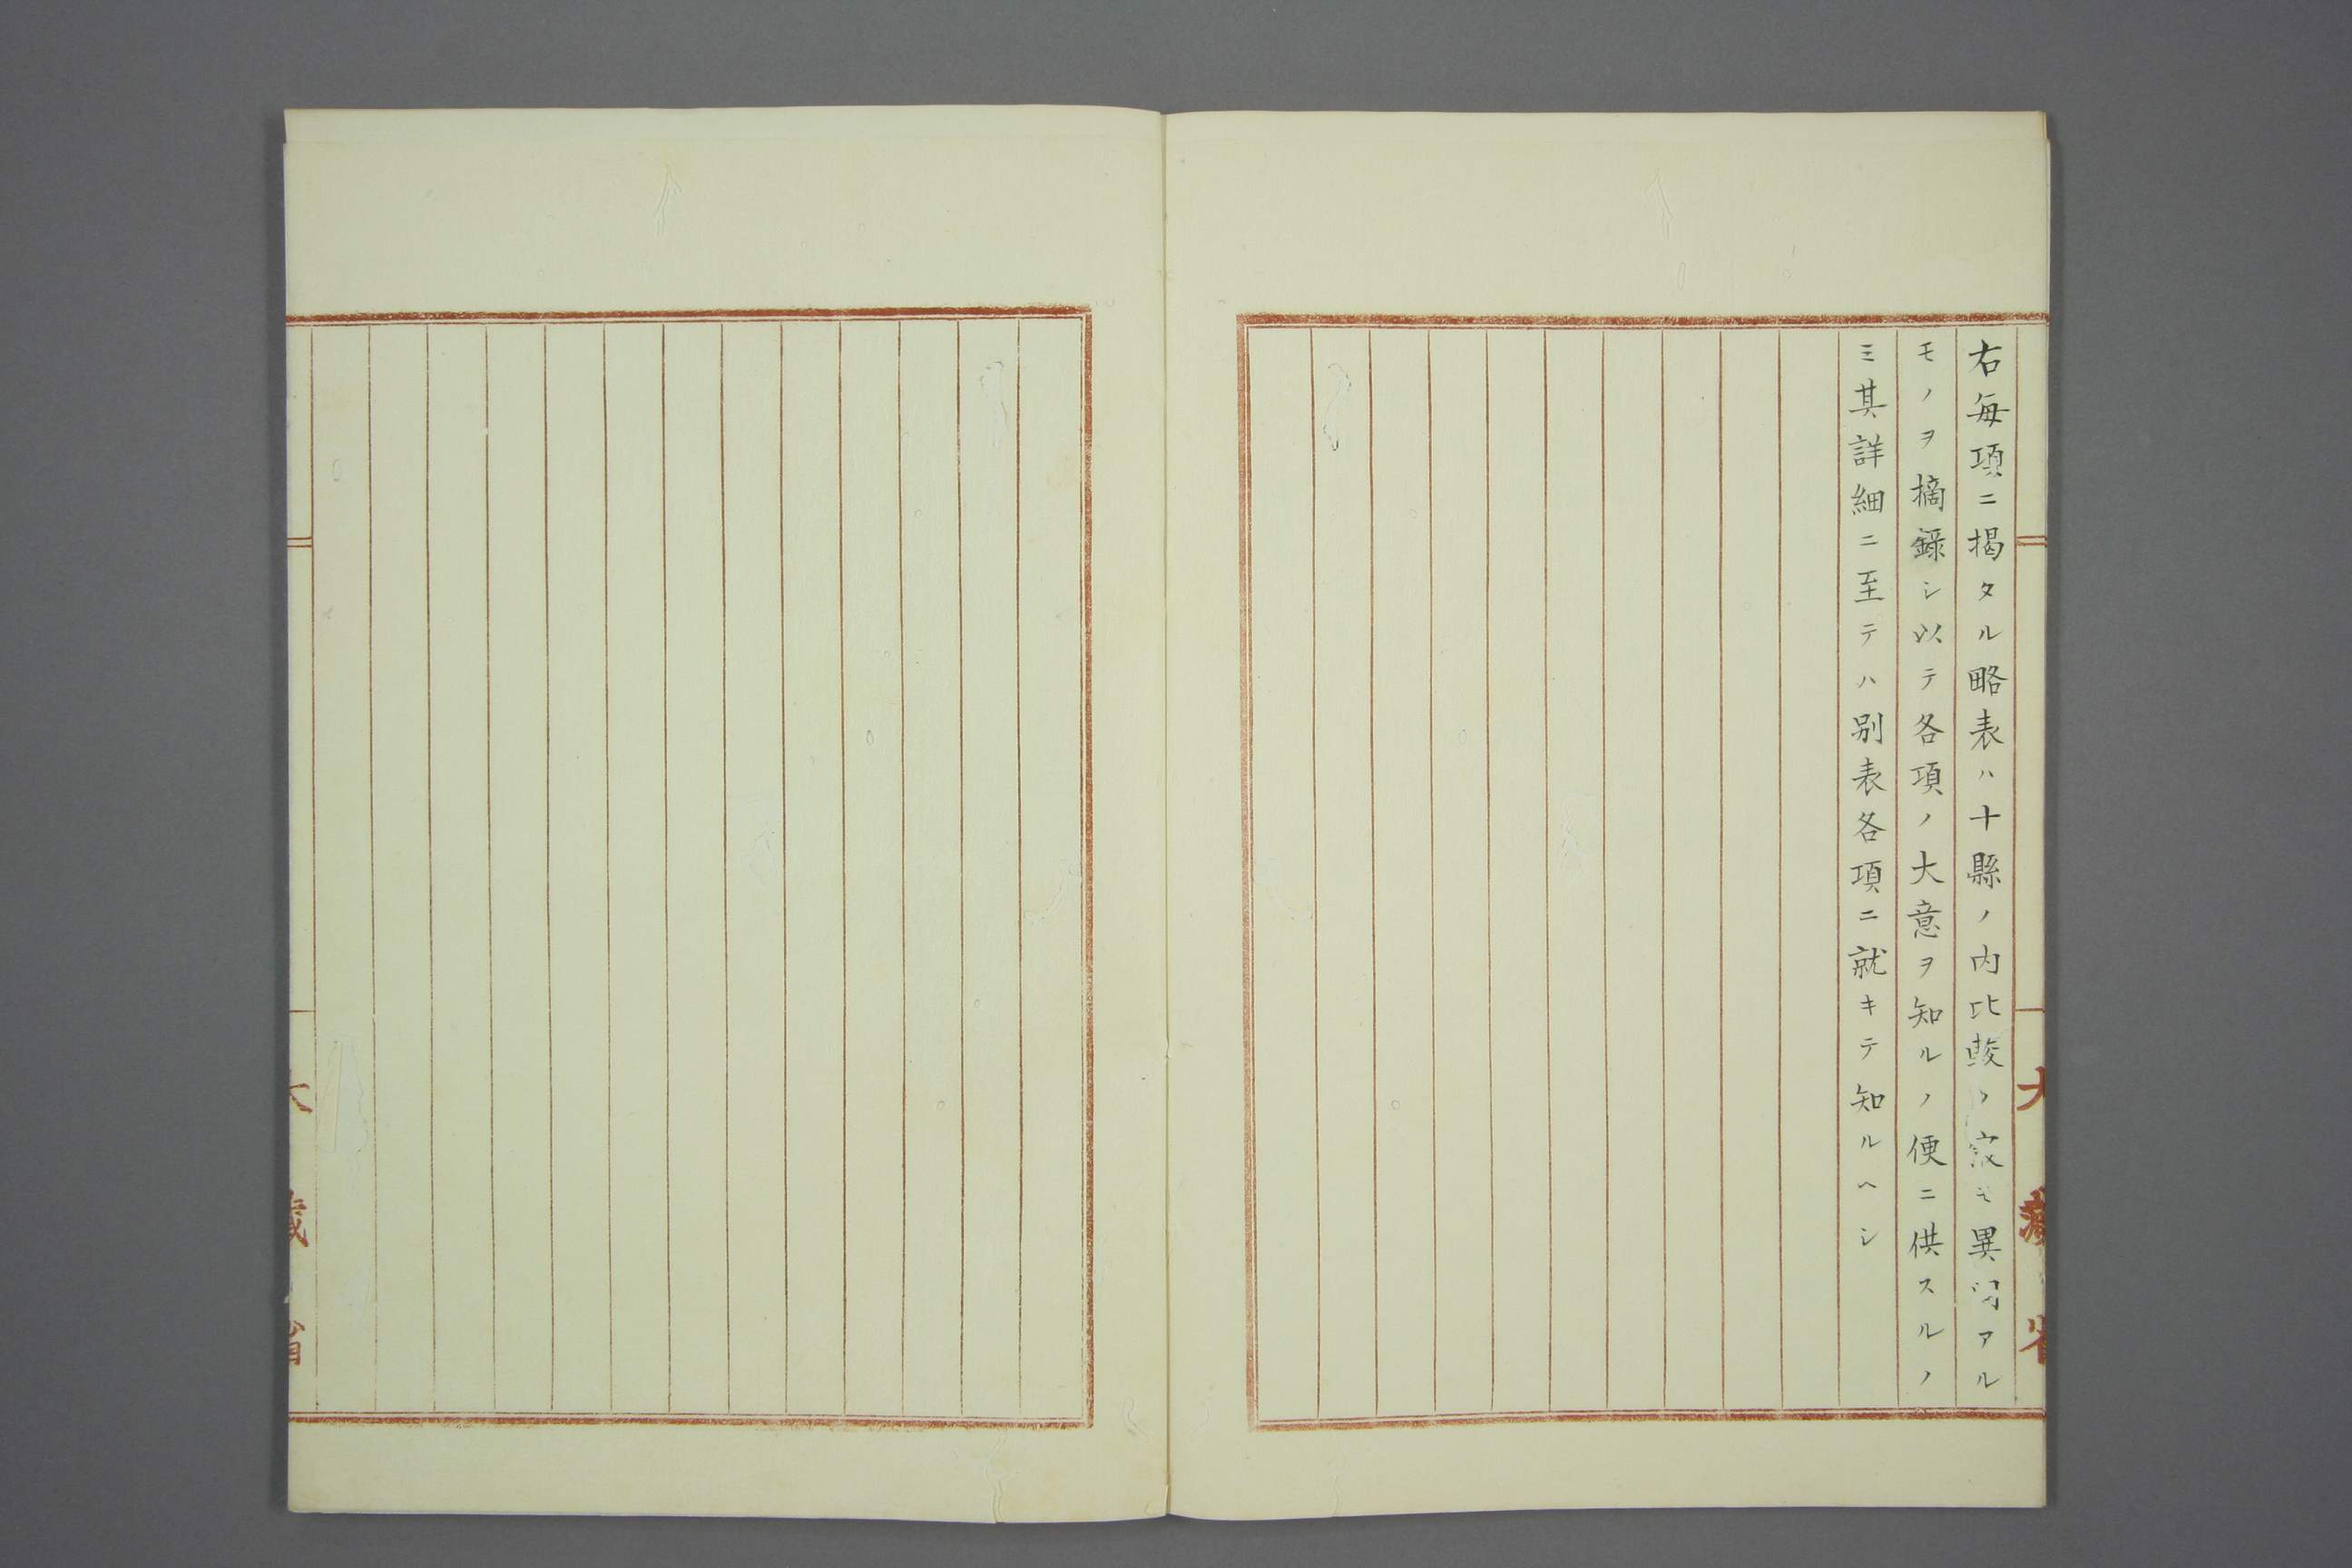 右毎項ニ掲タル略表ハ十縣ノ内比較シ最モ異同アル
モノヲ摘録シ以テ各項ノ大意ヲ知ルノ便ニ供スルノ
ミ其詳細ニ至テハ別表各項ニ就キテ知ルヘシ
大藏省
大藏省